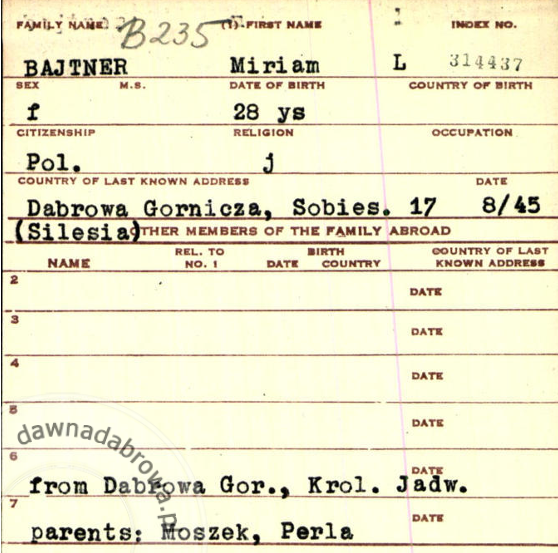 FAMILY NAME B235 (1) FIRST NAME INDEX NO.
BAJTNER Miriam L 314437
SEX M.S. DATE OF BIRTH COUNTRY OF BIRTH
f 28 ys
CITIZENSHIP RELIGION OCCUPATION
Pol. j
COUNTRY OF LAST KNOWN ADDRESS DATE
Dabrowa Gornicza, Sobies. 17 8/45
(Silesia) OTHER MEMBERS OF THE FAMILY ABROAD
NAME REL. TO NO. 1 BIRTH DATE COUNTRY COUNTRY OF LAST KNOWN ADDRESS
2 DATE
3 DATE
4 DATE
5 DATE
dawnadabrowa.pl
6 DATE
from Dabrowa Gor., Krol. Jadw.
7 DATE
parents: Moszek, Perla